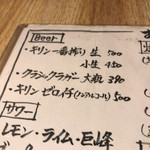 Beer
・キリン一番搾り 生 500
小生 450
・クラシックラガー 大瓶 590
・キリン ゼロイチ(ノンアルコール) 500
サワー
レモン・ライム・巨峰